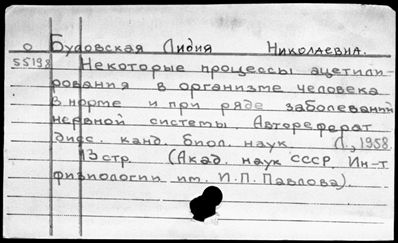 О Будовская Лидия Николаевна.
55198 Некоторые процессы ацетили-
рования в организме человека
в норме и при ряде заболеваний
нервной системы. Автореферат
дисс. канд. биол. наук. Л., 1958.
13 стр. (Акад. наук СССР. Ин-т
физиологии им. И.П. Павлова).